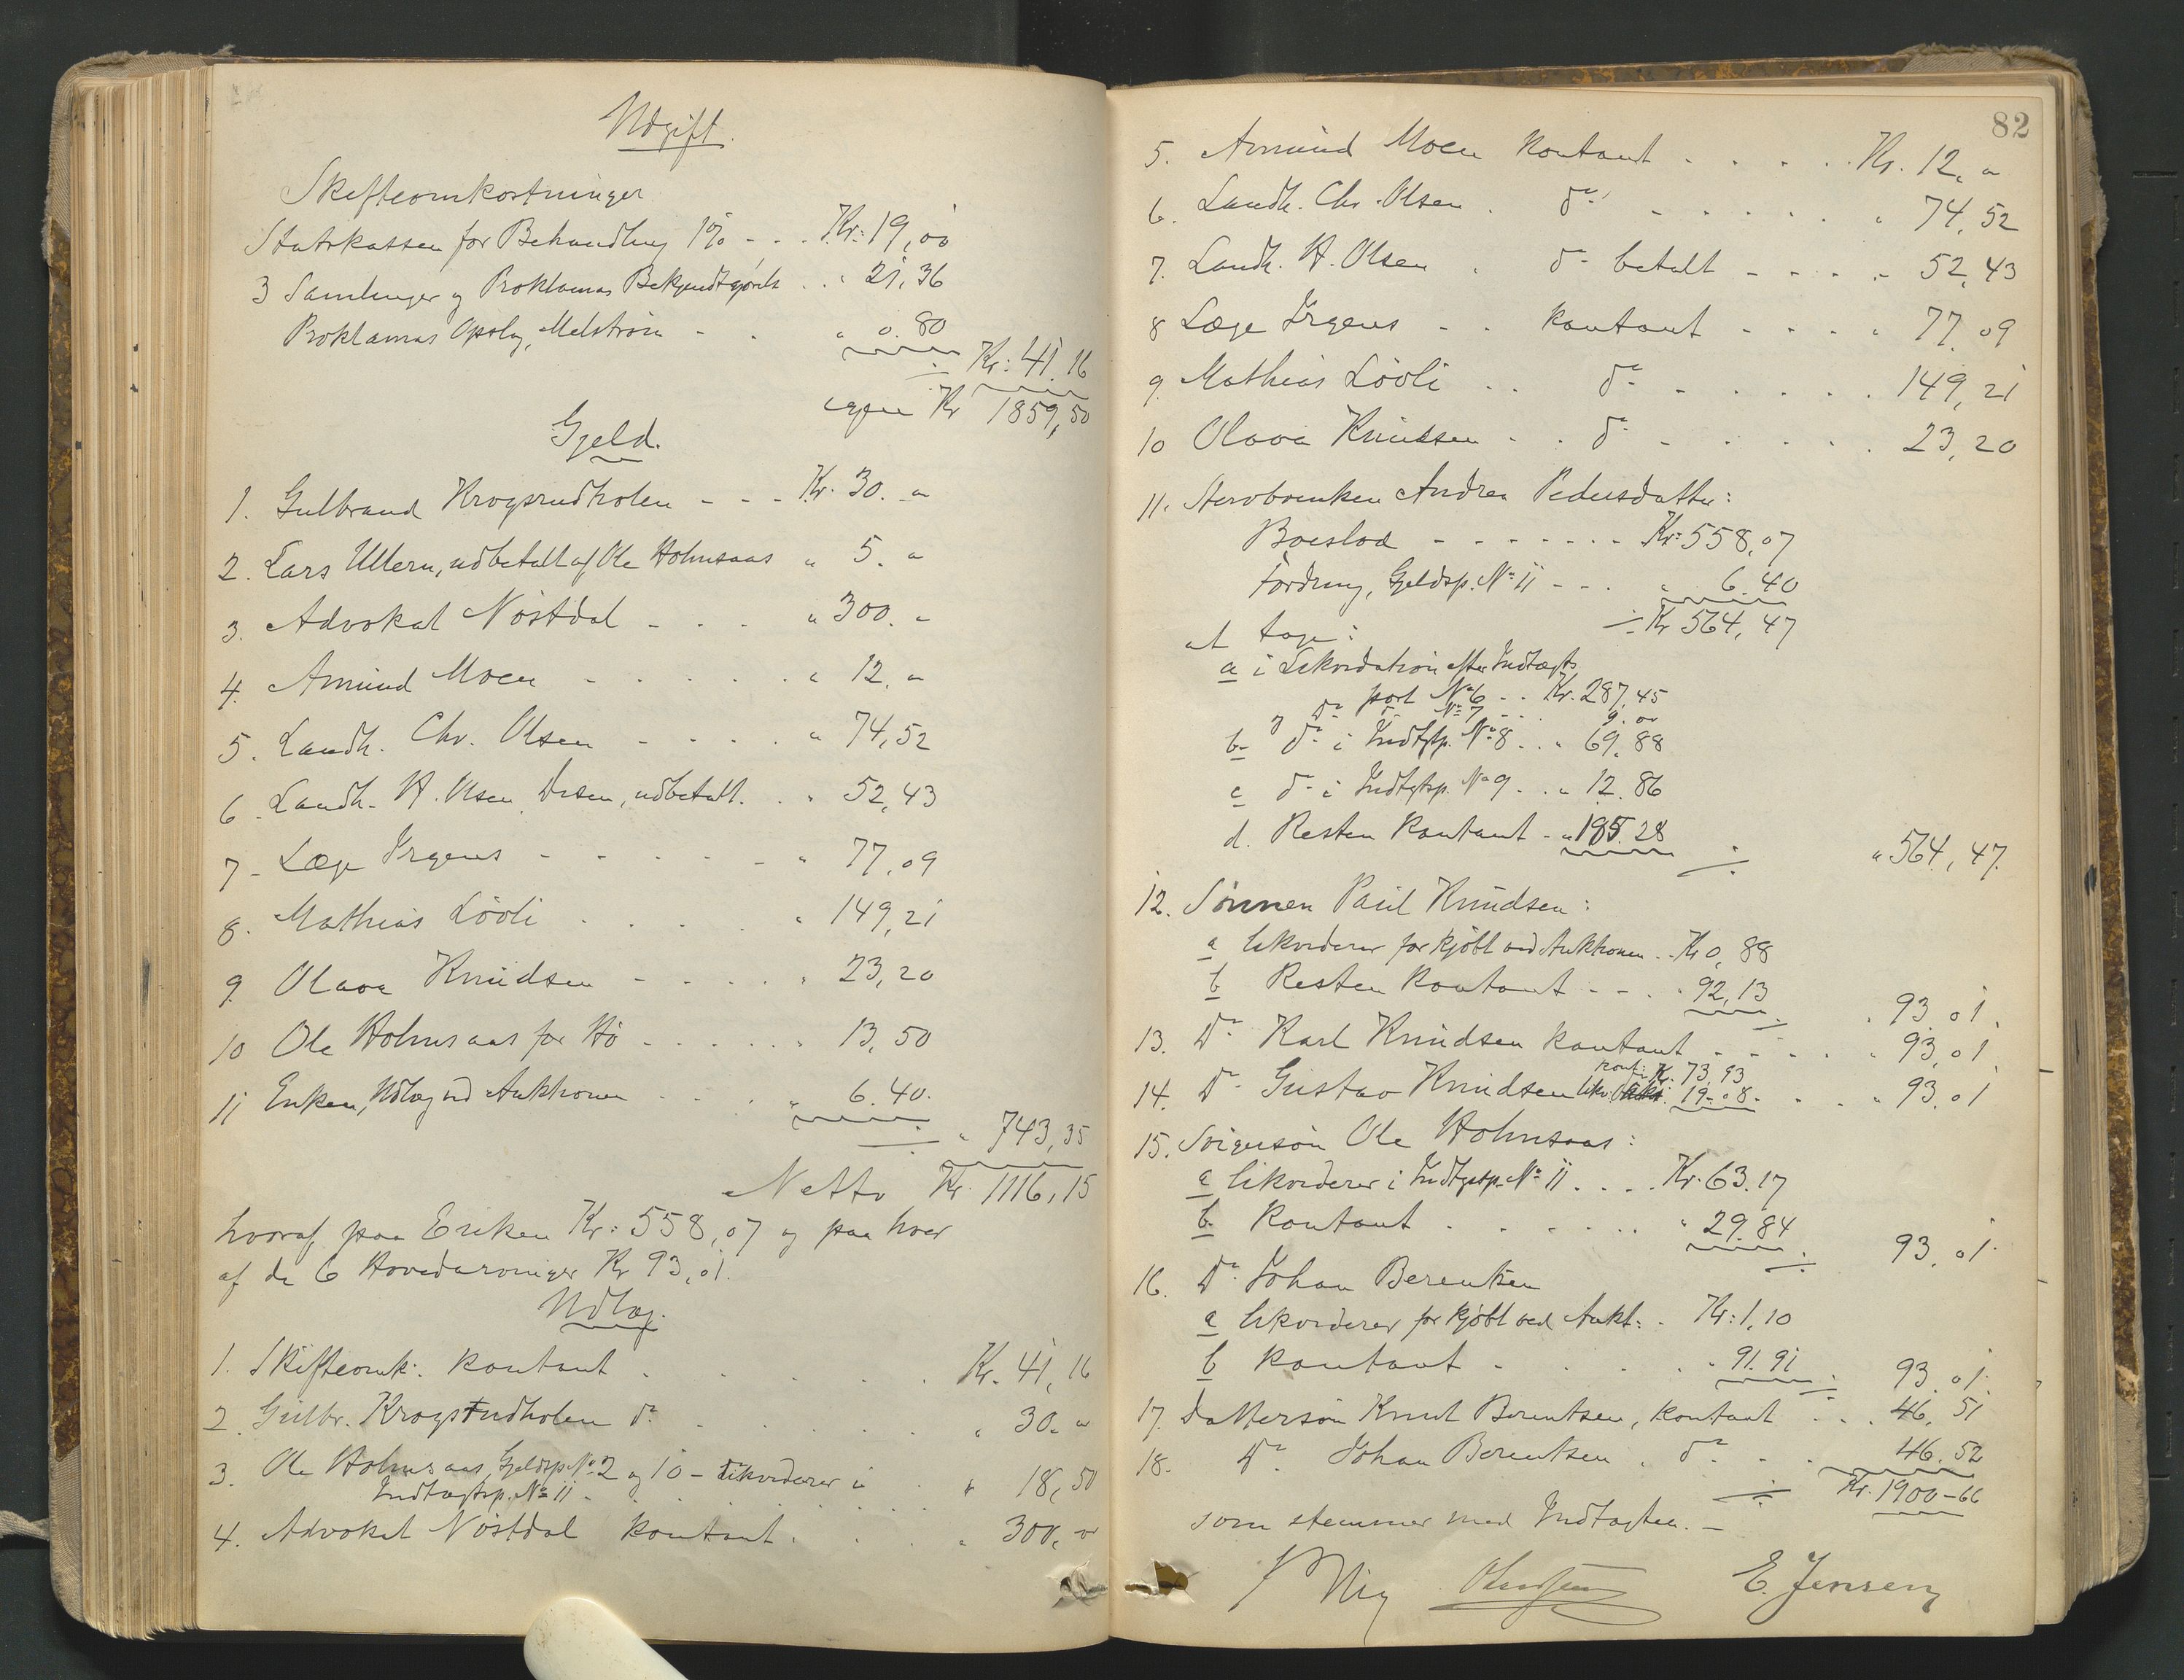 Udgift.
Skifteomkostninger
Statskassen for Behandling 1% - - . Kr: 19,00
3 Samlinger og Proklamas Bekjendtgjørels . . " 21,36
Proklamas Opslag, - . " 0.80
Kr: 41.16
igjen Kr 1859,50
Gjeld.
1. Gulbrand Krogsrudholen - - - Kr. 30. "
2. Lars Ullern, udbetalt af Ole Holmsaas " 5. "
3. Advokat Nøstdal - . . " 300. "
4. Amund Moen - . . . . " 12. "
5. Landh. Chr. Olsen - - . . . " 74,52
6. Landh. H. Olsen Disen, udbetalt. . " 52,43
7 - Læge Irgens - - - - - " 77,09
8. Mathias Lövli . . . . " 149,21
9. Olava Knudsen - . . . . 23,20
10 Ole Holmsaas for Hö . . . . . . 13,50
11 Enken, Udlæg ved Auktionen . . . " 6.40.
" 743,35
Netto Kr. 1116,15
hvoraf paa Enken Kr: 558,07 og paa hver
af de 6 Hovedarvinger Kr 93,01.
Udlæg.
1. Skifteomk. kontant . . . . . Kr. 41,16
2. Gulbr. Krogsrudholen do . . . . " 30. "
3. Ole Holmsaas, Gjeldsp. No 2 og 10 - likviderer i " 18,50
Indtægtsp. No 11 - . . . . . .
4. Advokat Nøstdal kontant . . . . 300, "
82
5. Amund Moen kontant . . . . . Kr. 12, "
6. Landh. Chr. Olsen . do - . . . . . " 74,52
7. Landh. H. Olsen . do betalt - - - . - 52,43
8 Læge Irgens - - kontant . . . . " 77.09
9. Mathias Lövli . . do - . . . . . 149,21
10 Olava Knudsen - . do - . . . . 23,20
11. Stervboenken Andrea Pedersdatter:
Boeslod - - - - - - - Kr: 558,07
Fordring, Gjeldsp. No 11 - - . " 6.40
Kr 564,47
at tage:
a i Likvidation efter Indtægts
post No 6 . . Kr. 287,45
og Do do No 7 . . . 9.00
b - do i Indtgtsp. No 8 . . " 69.88
c do i Indtgtsp. No 9 . . " 12.86
d. Resten kontant - " 185.28
" 564,47.
12. Sönnen Paul Knudsen:
a likviderer for kjöbt ved Auktionen . . Kr 0,88
b Resten kontant - - - . 92,13
. 93.01.
13. Do Karl Knudsen kontant - - . - . " 93,01
kont. Kr. 73,93
14. Do Gustav Knudsen likv. 19-08- . . " 93.01
15. Svigersön Ole Holmsaas:
a likviderer i Indtgtsp. No 11 . . . . Kr. 63.17
b kontant . . . . . . " 29.84
93.01.
16. Do Johan Berentsen
a likviderer for kjöbt ved Aukt: . Kr: 1,10
b kontant - . . . . . 91.91
93.01.
17. Dattersön Knut Berentsen, kontant . . . 46.51
18. Do Johan Berentsen . do . . . 46.52
Kr. 1900-66
som stemmer med Indtægten. -
E. Jensen